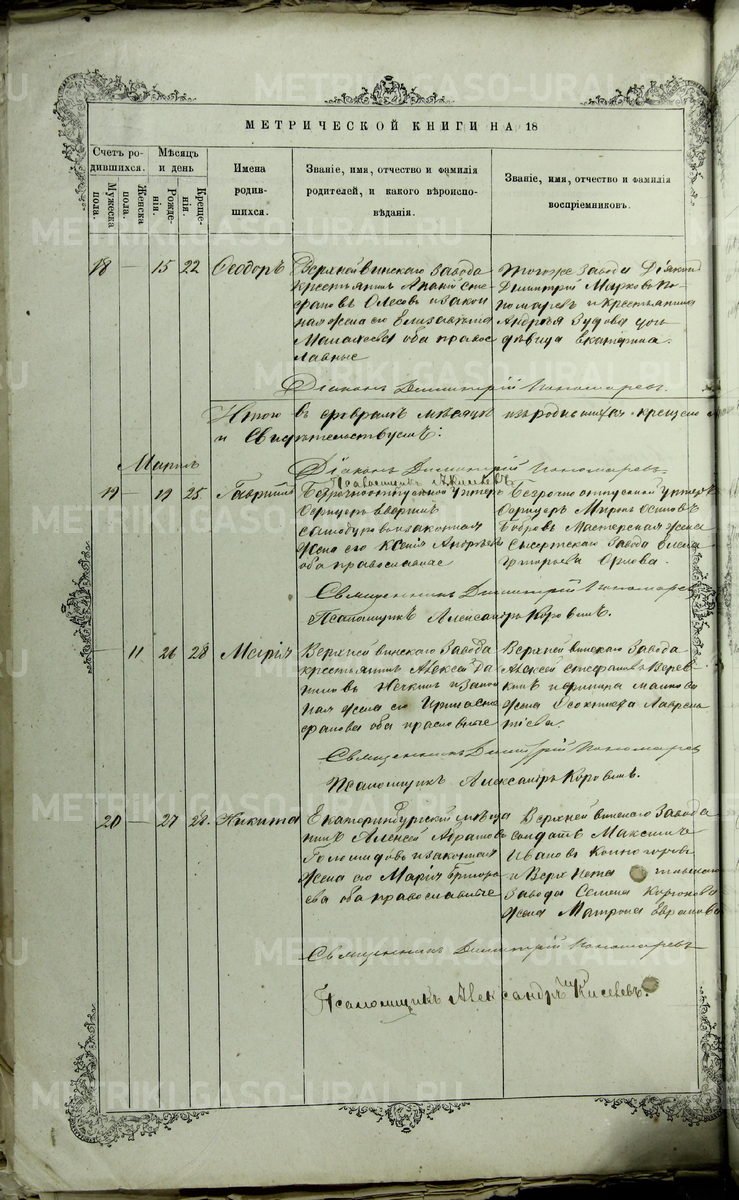 МЕТРИЧЕСКОЙ КНИГИ НА 18
Счетъ родившихся.
Мужеска пола.
Женска пола.
Мѣсяцъ и день
Рожденія.
Крещенія.
Имена родившихся.
Званіе, имя, отчество и фамилія родителей, и какого вѣроисповѣданія.
Званіе, имя, отчество и фамилія воспріемниковъ.
18 — 15 22 Ѳеодоръ
Верхнейвинскаго завода
крестьянинъ Анани Сте
фановъ Олесовъ и закон
ная жена его Елизавета
оба правос
лавные
тогоже завода Діаконъ
Димитрій Марковъ По
номаревъ и крестьянина
Андрея Зудова дочь
дѣвица Екатерина.
Діаконъ Димитрій Пономаревъ.
Итого въ февралѣ мѣсяцѣ крещено
и Свидѣтельствуемъ:
Діаконъ Димитрій Пономаревъ
Псаломщикъ А Киселевъ
Марта
19 — 19 25 Гавріилъ
Безсрочноотпускной унтеръ
Офицеръ
и законная
жена его Ксенія Андреева
оба православные
Безсрочно отпускной унтеръ
Офицеръ Миронъ Осиповъ
Бобровъ Мастерская жена
Сысертскаго Завода Елена
Григорьева Орлова.
Священникъ Димитрій Пономаревъ
Псаломщикъ Александръ Коровинъ.
— 11 26 28 Марія
Верхнейвинскаго Завода
крестьянинъ Алексей Да
ниловъ Нечкинъ и закон
ная жена его Ирина Сте
фанова оба православные
Верхнейвинскаго Завода
Алексей Стефановъ Верев
кинъ
жена Ѳеоктиста Лаврен
тіева.
Священникъ Димитрій Пономаревъ
Псаломщикъ Александръ Коровинъ.
20 — 27 28. Никита
Екатеринбургской мѣща
нинъ Алексей Абрамовъ
Голомидовъ и законная
жена его Марія Григорь
ева оба православные
Верхнейвинскаго Завода
солдатъ Максимъ
Ивановъ Конногоровъ
и Верхъ Исетскаго
Завода Семена
жена Матрона
Священникъ Димитрій Пономаревъ
Псаломщикъ Александръ Киселевъ.
METRIKI.GASO-URAL.RU